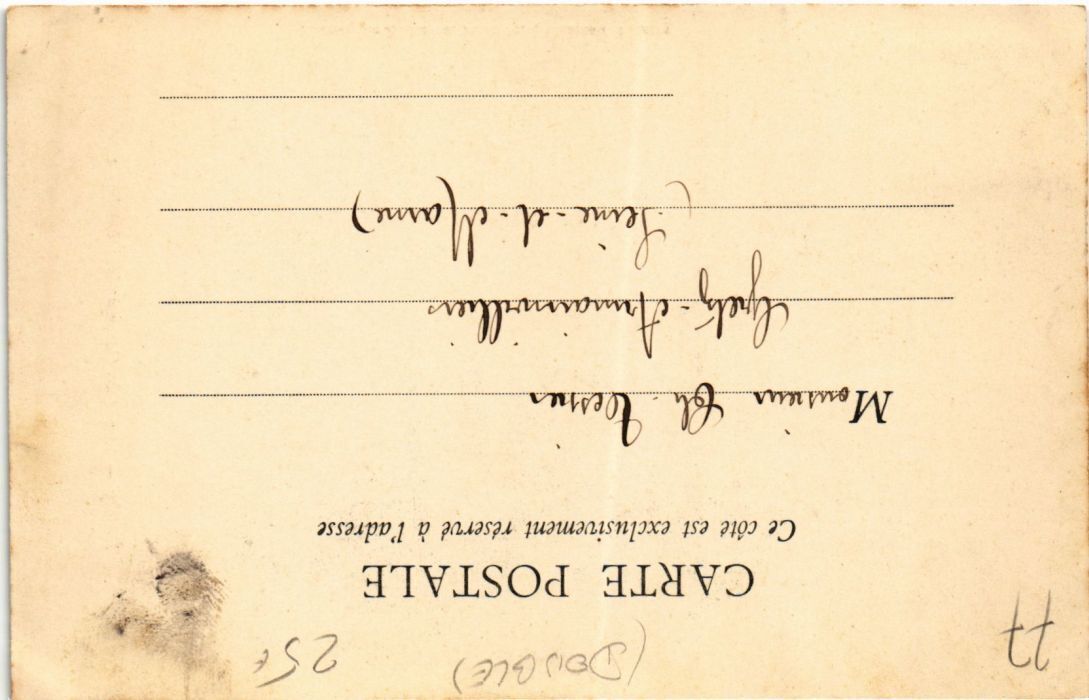 77
(DOUBLE)
25€
CARTE POSTALE
Ce côté est exclusivement réservé à l'adresse
Monsieur Ch.
Gretz-Armainvilliers
(Seine-et-Marne)